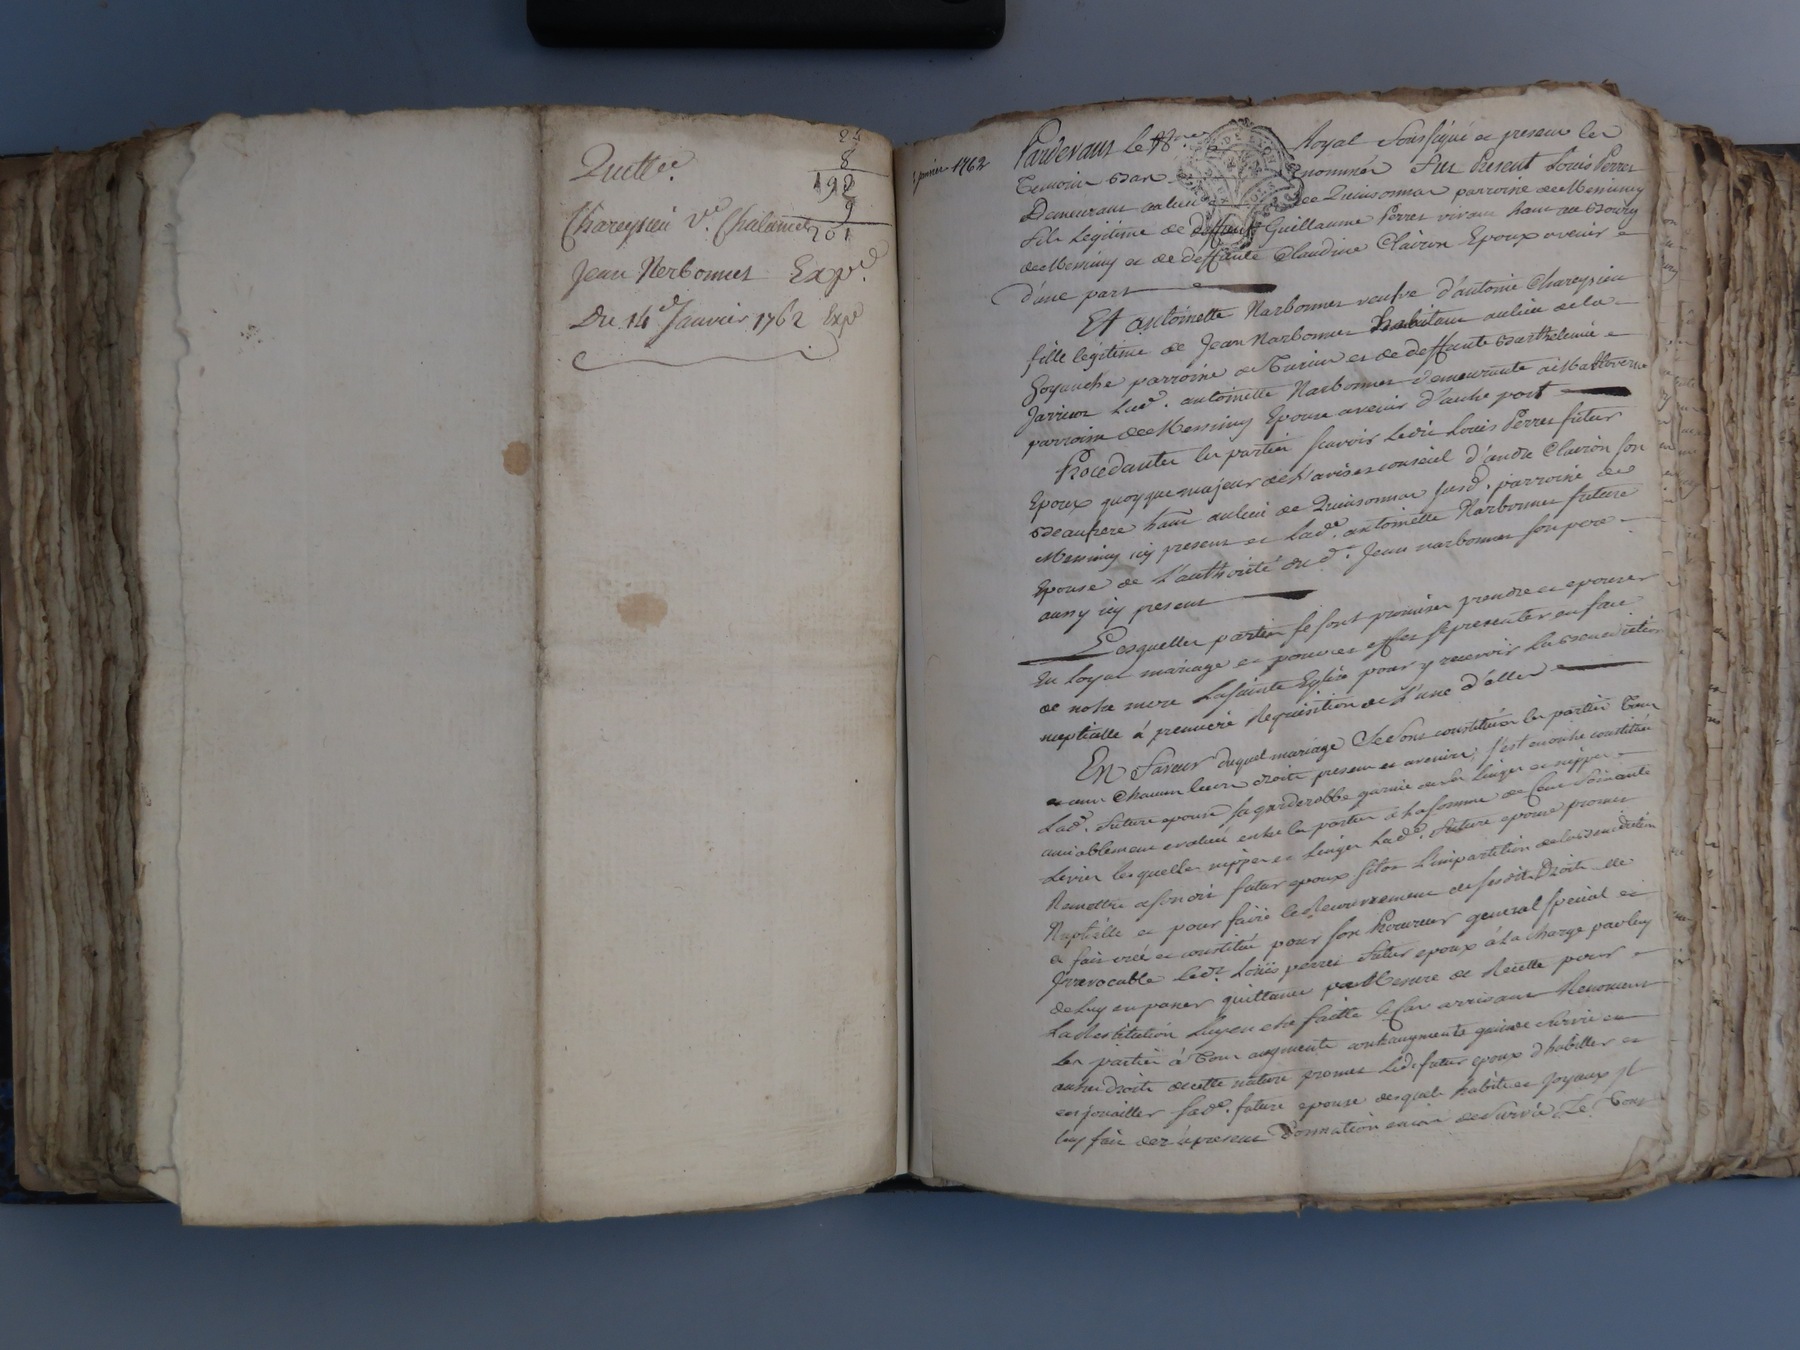 Quitt.ce
Chareyzieu v.e Chalamel
Jean Nerbonnet Exp.é
Du 14e Janvier 1762 Exp.é
24
8
192
9
201
janvier 1762
Pardevant le N.re Royal Soussigné et present les
Temoins Bas nommés Fut Present Louis Perret
Demeurant au lieu de Quinsonnat parroisse de Messimy
fils Legitime de deffunt Guillaume Perret vivant hant au Bourg
de Messimy et de deffunte Claudine Clairon Epoux avenir
d'une part
Et antoinette Narbonnet veufve d'antoine Chareyzieu
fille legitime de Jean Narbonnet habitant au lieu de la
Goyanche parroisse de Turins et de deffunte Barthelemie
Jarricot Lad.e antoinette Narbonnet demeurante à
parroisse de Messimy Epouse avenir d'autre part
Procedantes les parties scavoir Ledit Louis Perret futur
Epoux quoyque majeur de l'avis et conseil d'andré Clairon son
Beaufrere hant au lieu de Quinsonnat susd. parroisse de
Messimy icy present et Lad.e antoinette Narbonnet future
Epouse de L'authorité dud.t Jean narbonnet son pere
aussy icy present
Lesquelles parties se sont promises prendre et epouser
En Loyal mariage et pour cet effet se presenter en face
de notre mere La sainte Eglise pour y recevoir La Benediction
nuptialle à premiere Requisition de L'une d'elles
En Faveur duquel mariage Se sont constitués les parties Tous
et uns chacuns leurs droits present et avenirs, s'est en outre constituée
Lad.e future epouse sa garderobbe garnie de ses linges et nippes
amiablement evalués entre les parties à la somme de Cent Soixante
Livres lesquelles nippes et linges Lad.e future epouse promet
Remettre a sondit futur epoux selon L'impartition de la Benediction
Nuptialle et pour faire le Recouvrement de sesdits Droits elle
a fait créé et constitué pour son Procureur general special et
Irrevocable led.t Louis perret futur epoux à la charge par luy
de luy en passer quittance par Mesure de Recette pour
La Restitution luy en etre faitte le cas arrivant Renoncent
les parties à Tous augments contraugments gains de Survie et
autres droits de cette nature promet led.t futur epoux d'habiller et
enjouailler sad.e future epouse desquels habits et Joyaux il
luy fait dez à present Donnation en cas de Survie Le Tout